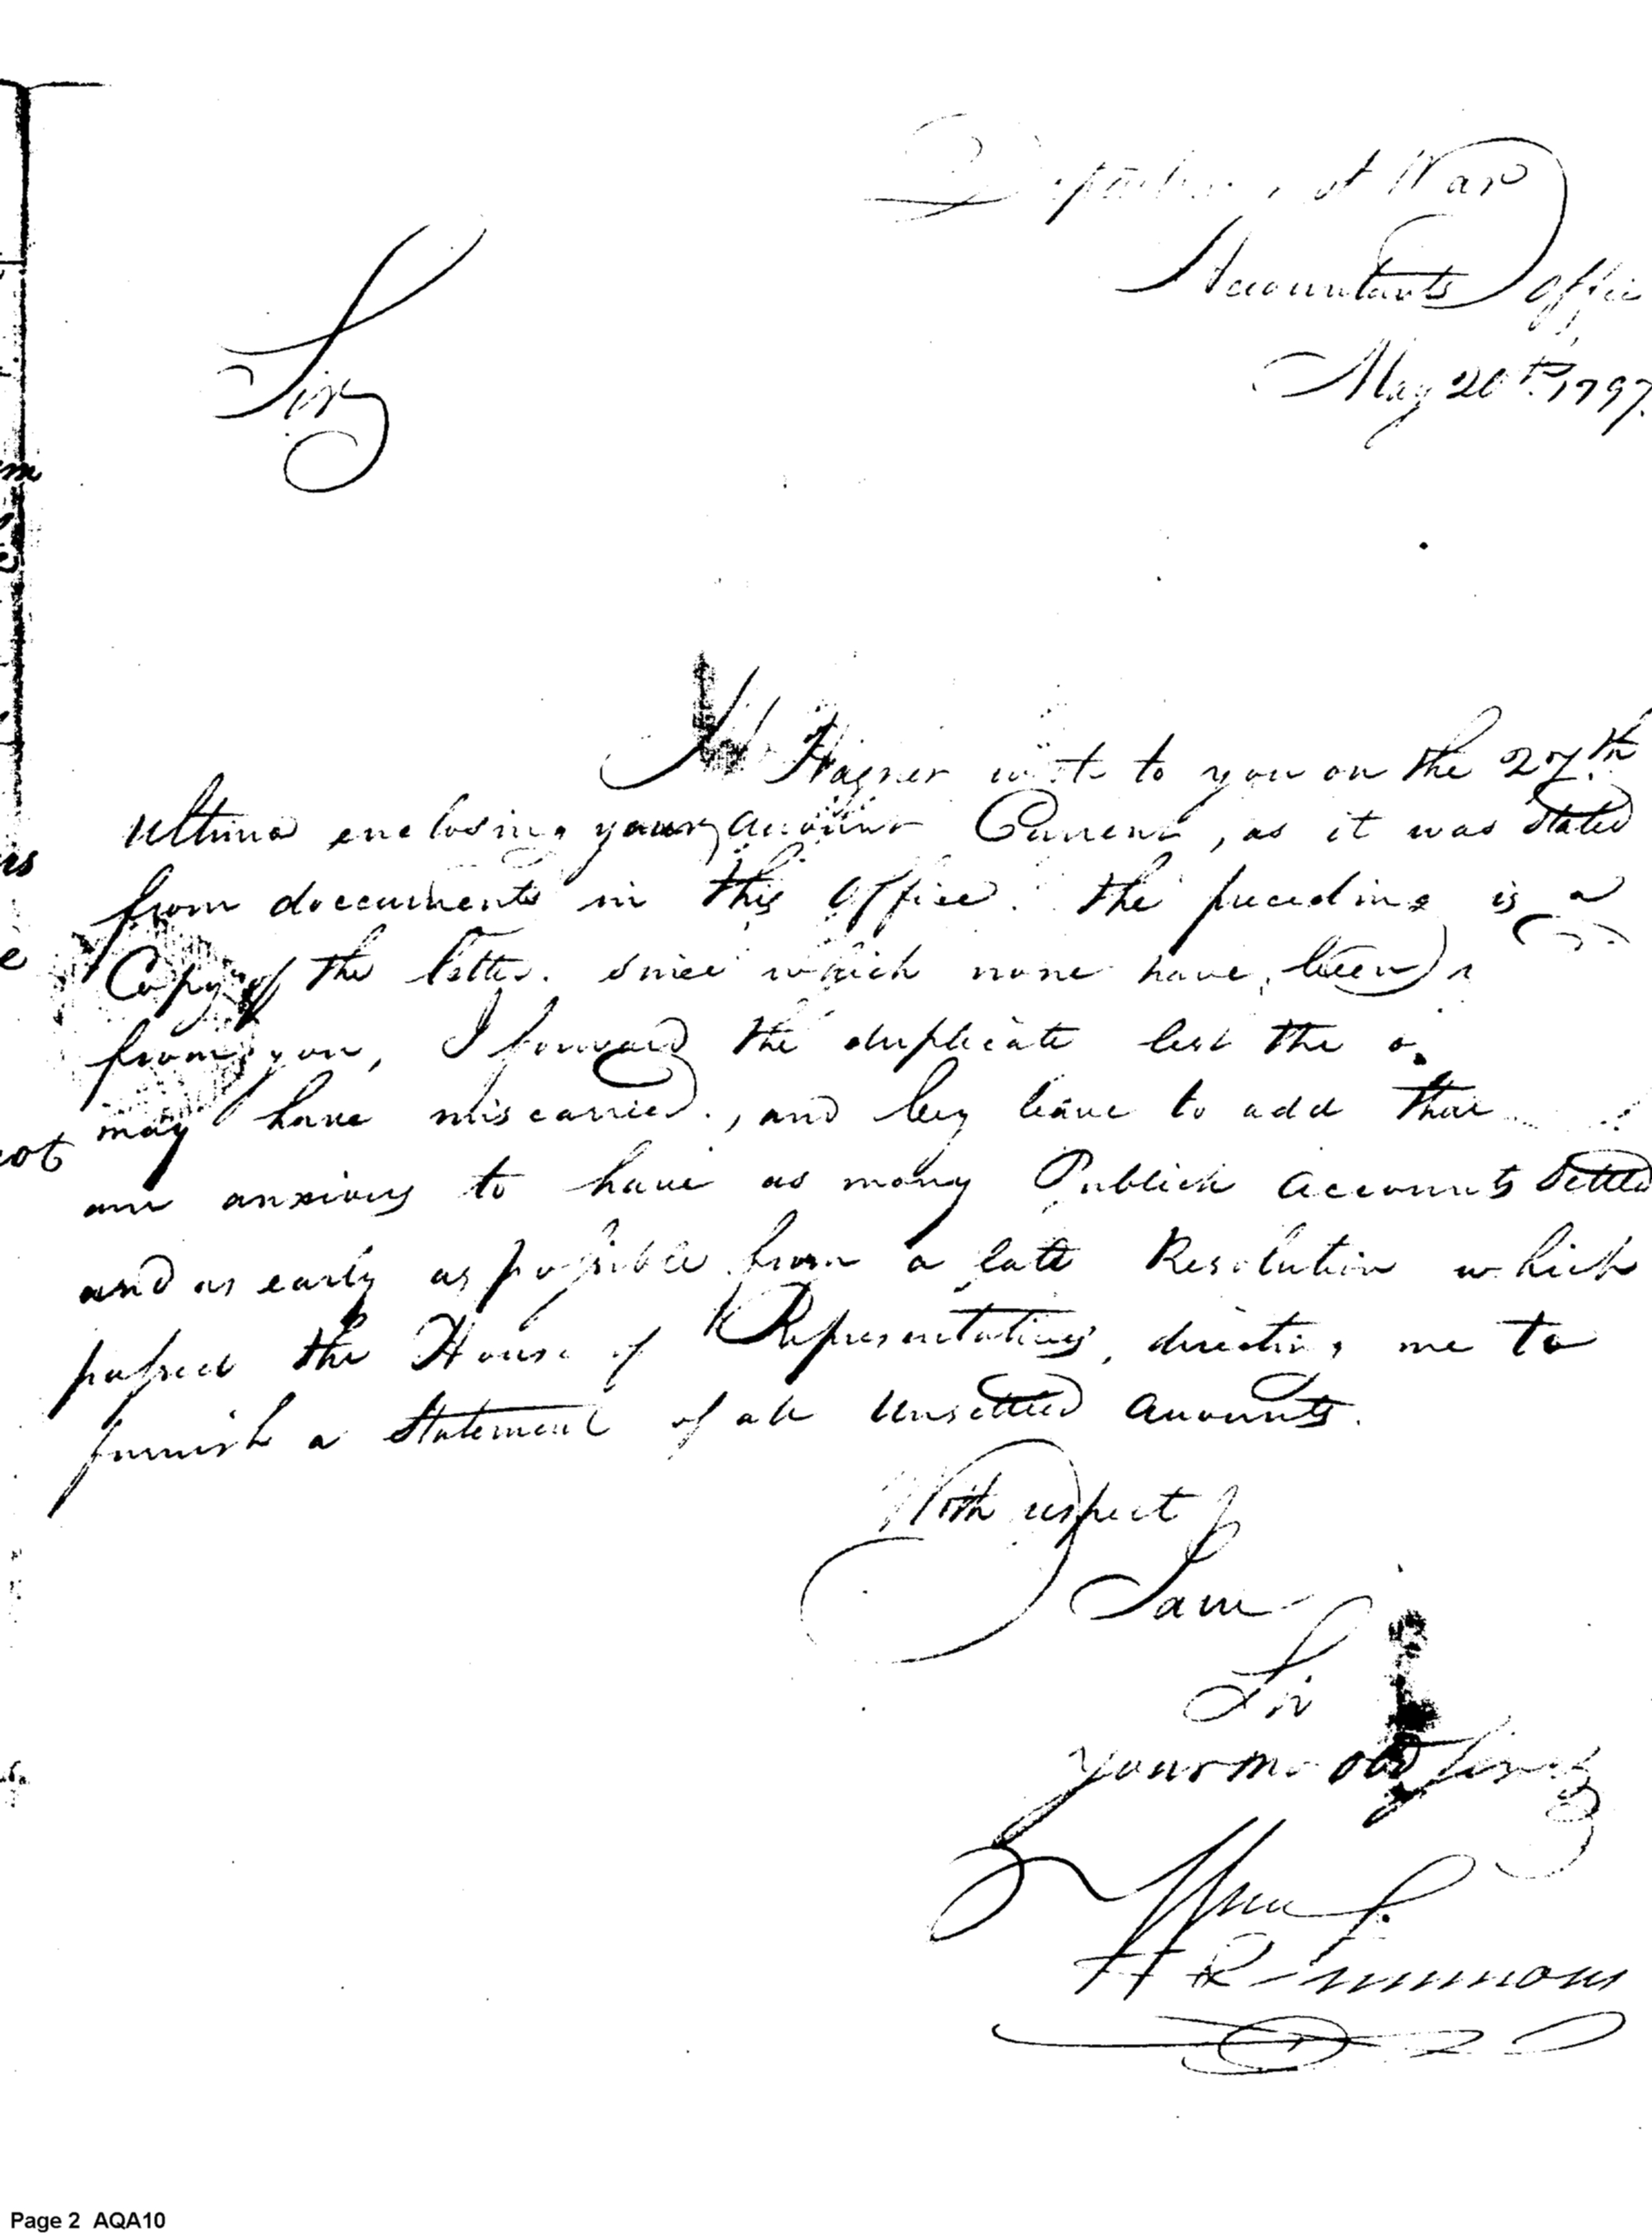 Department of War
Accountants Office
May 20th. 1797.
Sir
Mr Hagner wrote to you on the 27th
Ultimo enclosing your account Current, as it was Stated
from doccuments in this Office. The preceeding is a
Copy of the letter. since which none have been
from you, I forward the duplicate lest the
may have miscarried, and beg leave to add that
am anxious to have as many Publick Accounts Settled
and as early as possible from a late Resolution which
passed the House of Representatives, directing me to
furnish a Statement of all Unsettled Accounts.
With respect
I am
Sir
your mo obd Servt
Wm Simmons
not
Page 2 AQA10